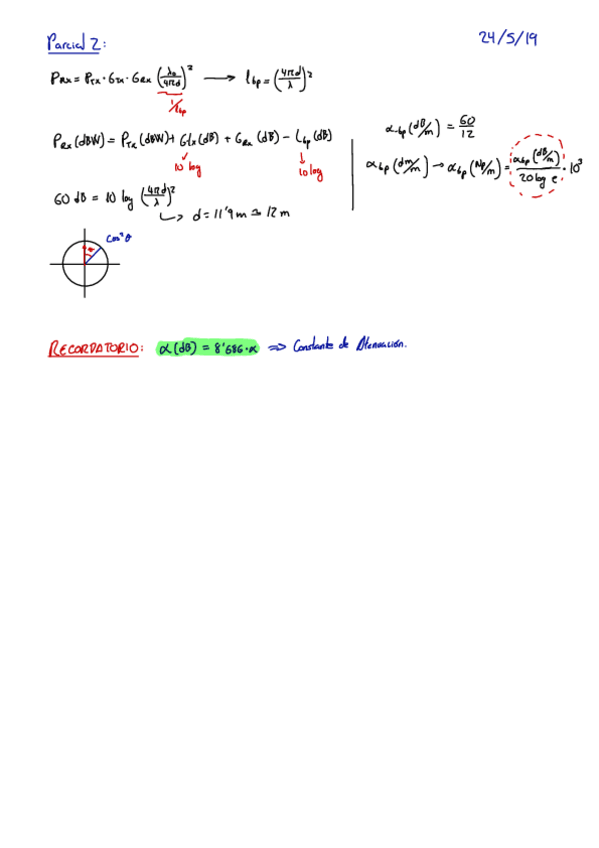 Parcial 2:
24/5/19
P_Rx = P_Tx · G_Tx · G_Rx (λ₀/4πd)² → l_bp = (4πd/λ)²
1/l_bp
P_Rx (dBW) = P_Tx (dBW) + G_Tx (dB) + G_Rx (dB) − L_bp (dB)
10 log
10 log
60 dB = 10 log (4πd/λ)²
↳ d = 11'9 m ≃ 12 m
cos² θ
α_bp (dB/m) = 60/12
α_bp (dm/m) → α_bp (Np/m) = α_bp (dB/m)/20 log e · 10³
RECORDATORIO: α (dB) = 8'686·α ⇒ Constante de Atenuación.